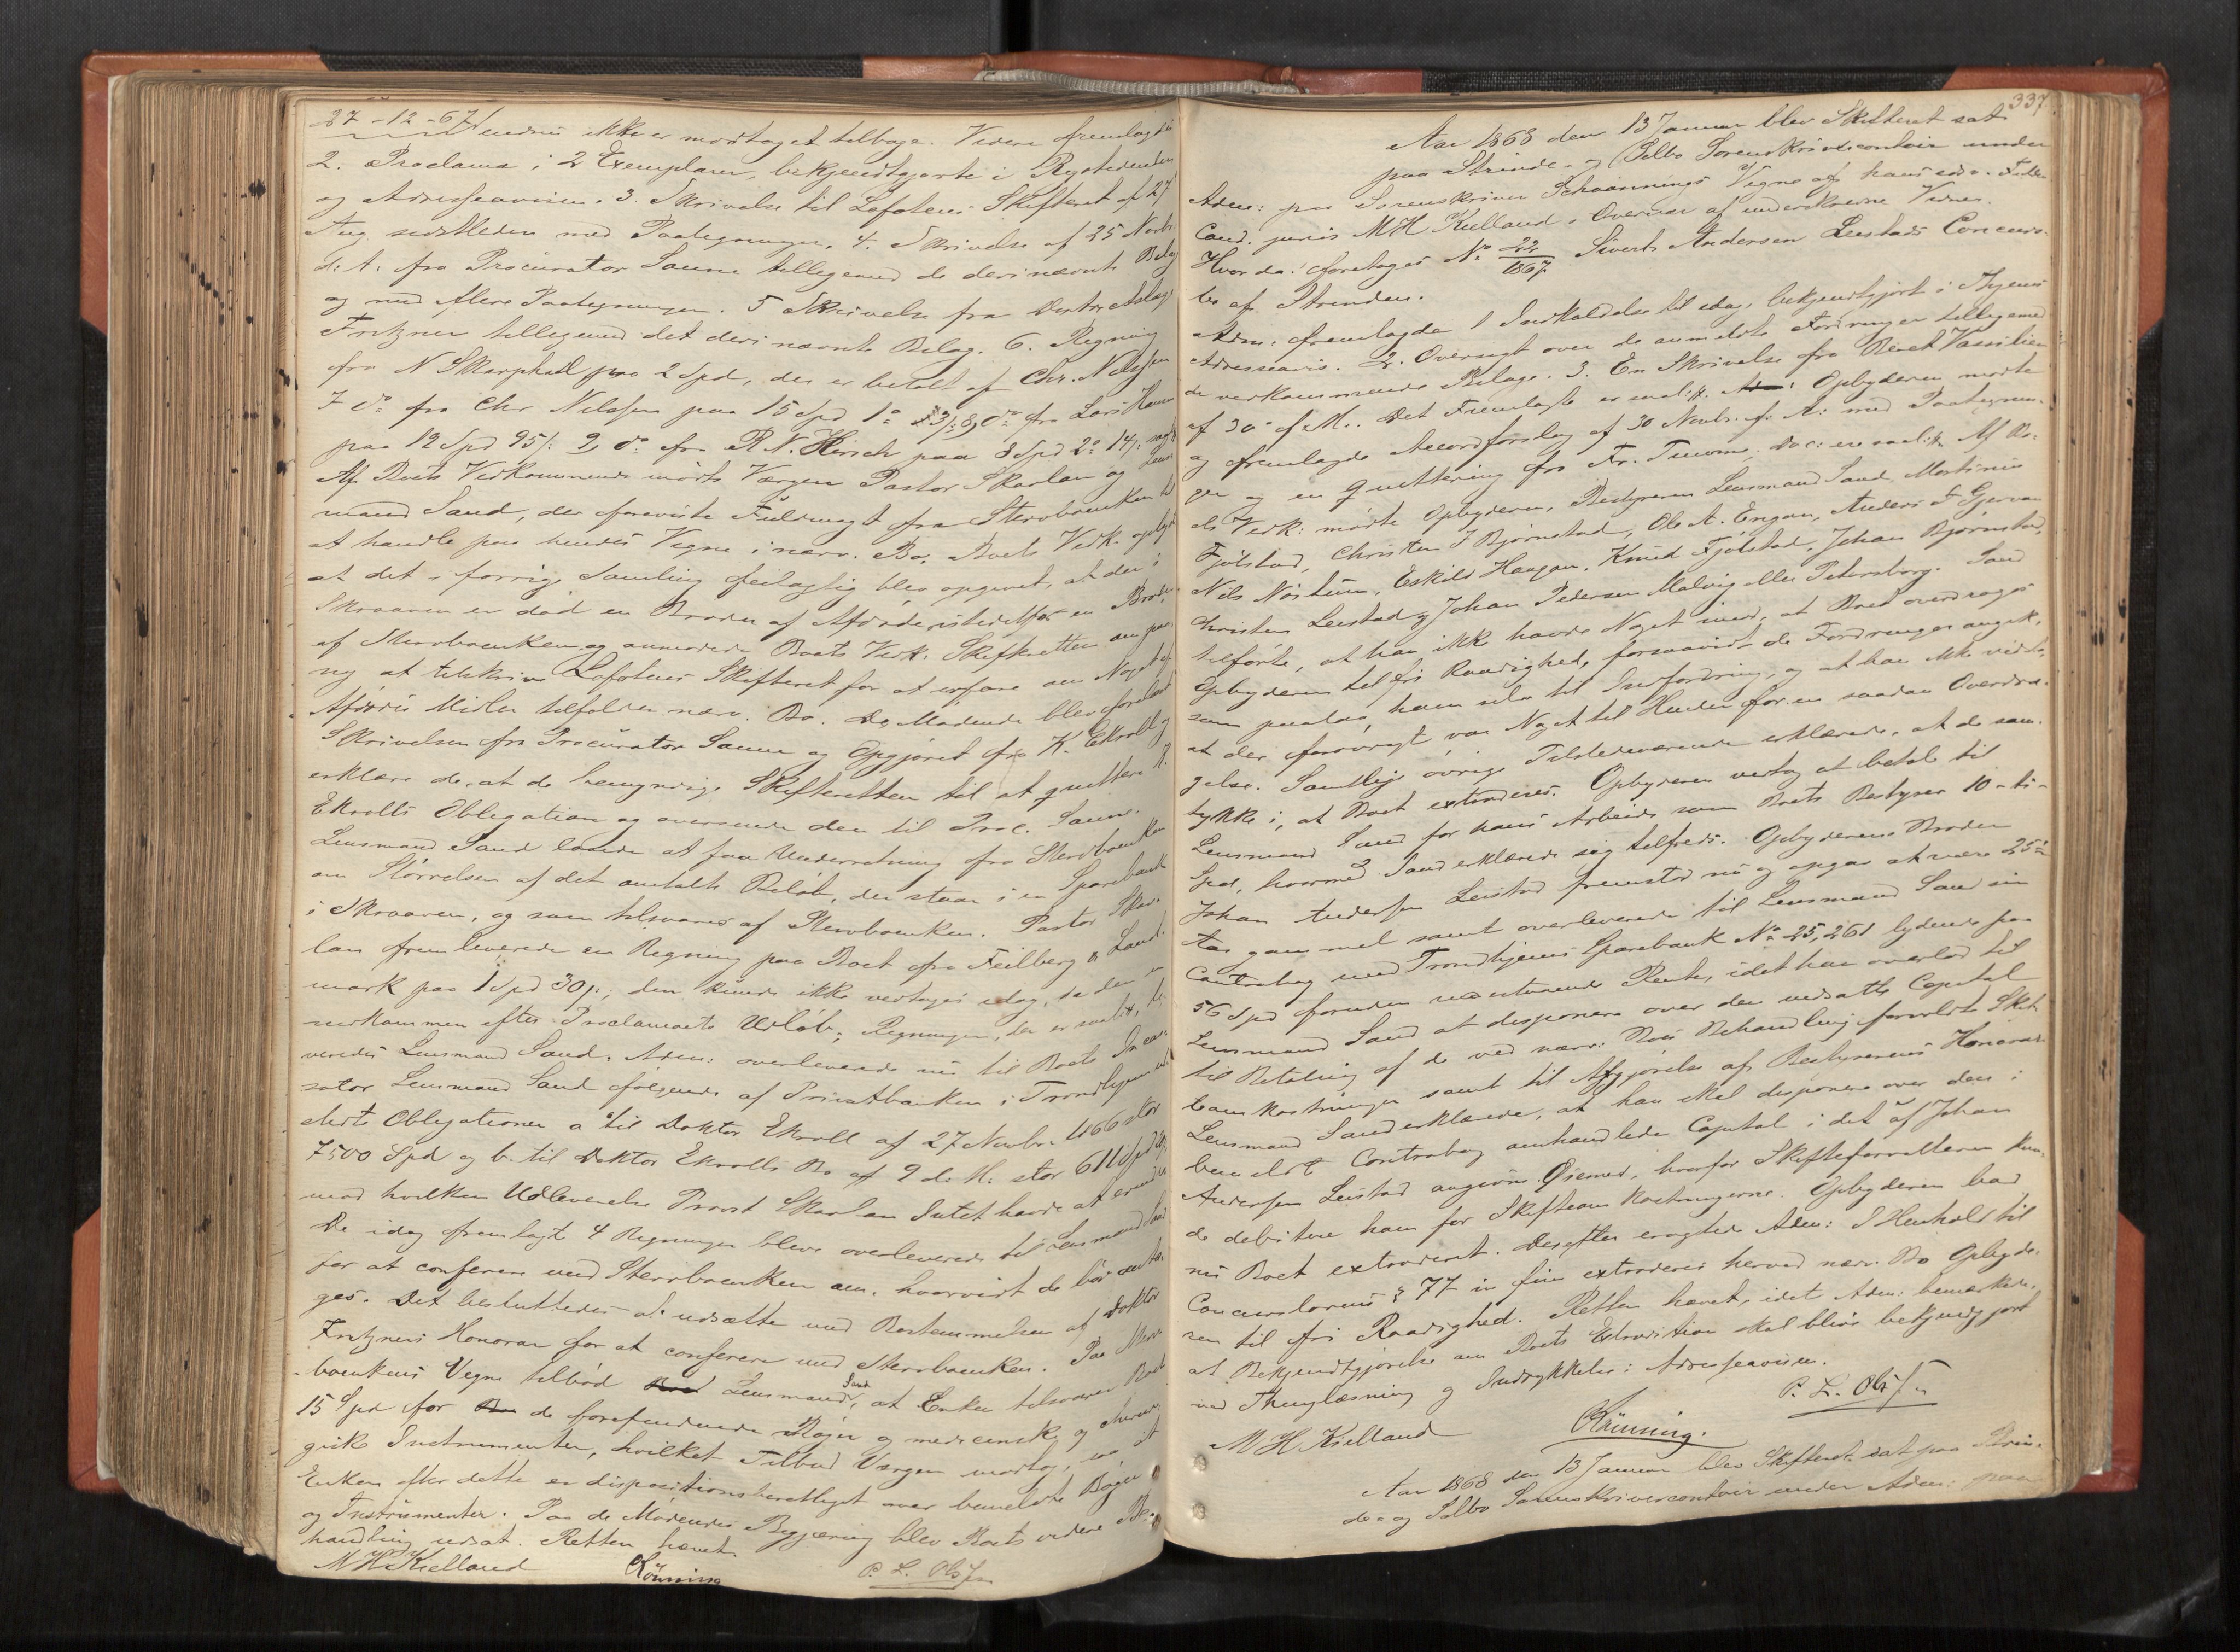 27-12-67/ endnu ikke er modtaget tilbage. Videre fremlagdes
2. Proclama i 2 Exemplarer, bekjendtgjorte i Rigstidenden
og Adresseavisen. 3. Skrivelse til Lofotens Skifteret af 27
Aug sidstleden med Paategninger. 4. Skrivelse af 25 Novbr.
d: A: fra Procurator Saune tilligemed de deri nævnte Bilag
og med flere Paategninger. 5 Skrivelse fra Doctor
Fritzner tilligemed det deri nævnte Bilag. 6. Regning
fra N Skarphol paa 2 Spd, der er betalt af Chr. Nilssen
7 do fra Chr Nilssen paa 15 Spd 1 8, do fra Lars
paa 12 Spd 95/: 9, do fra R N. Hirsch paa 8 Spd 2 14/:
Af Boets Vedkommende mødte Værgen Pastor Skarlan og Lens
mand Sand, der foreviste Fuldmagt fra Stervboenken til
at handle paa hendes Vegne i nærv. Bo. Boets Vedk. oplyst
at det i forrige Samling feilagtig blev opgivet, at der i
Skraaven er død en Broder af Afdøde istedetfor en Broder
af Stervboenken og anmodede Boets Vedk: Skifteretten om paa
ny at tilskrive Lofotens Skifteret for at erfare om Noget af
Afdødes Midler tilfalder nærv. Bo. De Mødende blev forelæst
Skrivelsen fra Procurator Saune og Opgjøret fra K. Ekroll og
erklære de, at de bemyndige Skifteretten til at qvittere K.
Ekrolls Obligation og oversende den til Proc. Saune.
Lensmand Sand lovede at faa Underretning fra Stervboenken
om Størrelsen af det omtalte Beløb, der staar i en Sparebank
i Skraaven, og som tilsvares af Stervboenken. Pastor Skar-
lan fremleverede en Regning paa Boet fra Feilberg & Land-
mark paa 1 Spd 30/:, den kunde ikke vedtages idag, da den er
indkommen efter Proclamaets Udløb; Regningen, der er
veredes Lensmand Sand. Adm: overleverede nu til Boets Incas-
sator Lensmand Sand følgende af Privatbanken i Trondhjem
stedte Obligationer a til Doktor Ekroll af 27 Novbr 1866 stor
7500 Spd og b. til Doktor Ekrolls Bo af 9 d: M: stor 611 Spd
mod hvilken Udleverelse Provst Skarlan Intet havde at erindre
De idag fremlagte 4 Regninger bleve overleverede til Lensmand Sand
for at conferere med Stervboenken om, hvorvidt de bør
ges. Det besluttedes at udsætte med Bestemmelsen af Doktor
Fritzners Honorar for at conferere med Stervboenken. Paa Sterv-
boenkens Vegne tilbød Lensmand Sand, at Enken tilsvarer Boet
15 Spd for de forefundne Bøger og medicinske og chirur-
giske Instrumenter, hvilket Tilbud Værgen modtog, saa at
Enken efter dette er dispositionsberettiget over bemeldte Bøger
og Instrumenter. Paa de Mødendes Begjæring blev Boets videre Be-
handling udsat. Retten hævet.
M H Kielland Rønning P. L. Olsen
337.
Aar 1868 den 13 Januar blev Skifteret sat
paa Strinde- og Selbo Sorenskrivercontoir under
Adm: paa Sorenskriver Schwannings Vegne af hans edsv. Fuldm
Cand. juris M H Kielland i Overvær af underskrevne Vidner.
Hvor da: foretoges No 22/1867 Sivert Andersen Leistads Concurs-
bo af Strinden.
Adm. fremlagde 1 Indkaldelse til idag, bekjendtgjort i Thjems
Adresseavis. 2. Oversigt over de anmeldte Fordringer tilligemed
de vedkommende Bilage. 3. En Skrivelse fra Beret Vassilien
af 30 f. M. Det Fremlagte er saal: Opbyderen mødte
og fremlagde Accordforslag af 30 Novbr. f: A: med Paategnin-
ger og en Qvittering fra Fr. ; Doc: ere saal: Af Bo-
ets Vedk: mødte Opbyderen, Bestyreren Lensmand Sand, Martinus
Fjølstad, Christen J Bjørnstad, Ole A. Engan, Anders J Gjervan
Nils Nøstum, Eskild Haugan, Knud Fjølstad, Johan Bjørnstad,
Christen Leistad og Johan Pedersen Malvig eller Petersborg. Sand
tilførte, at han ikke havde Noget imod, at Boet overdrages
Opbyderen til fri Raadighed, forsaavidt de Fordringer angik,
som paalaa ham selv til Indfordring, og at han ikke vidste,
at der forøvrigt var Noget til Hinder for en saadan Overdra-
gelse. Samtlige øvrige Tilstedeværende erklærede, at de sam-
tykke i, at Boet extraderes. Opbyderen vedtog at betale til
Lensmand Sand for hans Arbeide som Boets Bestyrer 10 - ti -
Spd, hvormed Sand erklærede sig tilfreds. Opbyderens Broder
Johan Andersen Leistad fremstod nu og opgav at være 25
Aar gammel samt overleverede til Lensmand Sand sin
Contrabog med Trondhjems Sparebank No 25,261 lydende paa
56 Spd foruden uudbetalte Renter, idet han overlod til
Lensmand Sand at disponere over den indsatte Capital
til Betaling af de ved nærv: Boes Behandling forvoldte Skif-
teomkostninger samt til Afgjørelse af Bestyrerens Honorar.
Lensmand Sand erklærede, at han skal disponere over den i
bemeldte Contrabog omhandlede Capital i det af Johan
Andersen Leistad angivne Øiemed, hvorfor Skifteforvalteren kun-
de debitere ham for Skifteomkostningerne. Opbyderen bad
nu Boet extraderet. Derefter eragtede Adm: I Henhold til
Concurslovens § 77 in fine extraderes herved nærv. Bo Opbyde-
ren til fri Raadighed. Retten hævet, idet Adm: bemærkede,
at Bekjendtgjørelse om Boets Extradition skal blive bekjendtgjort
ved Thinglæsning og Indrykkelse i Adresseavisen.
P. L. Olsen
M H Kielland Rønning.
Aar 1868 den 13 Januar blev Skifteret sat paa Strin-
de- og Selbo Sorenskrivercontoir under Adm: paa